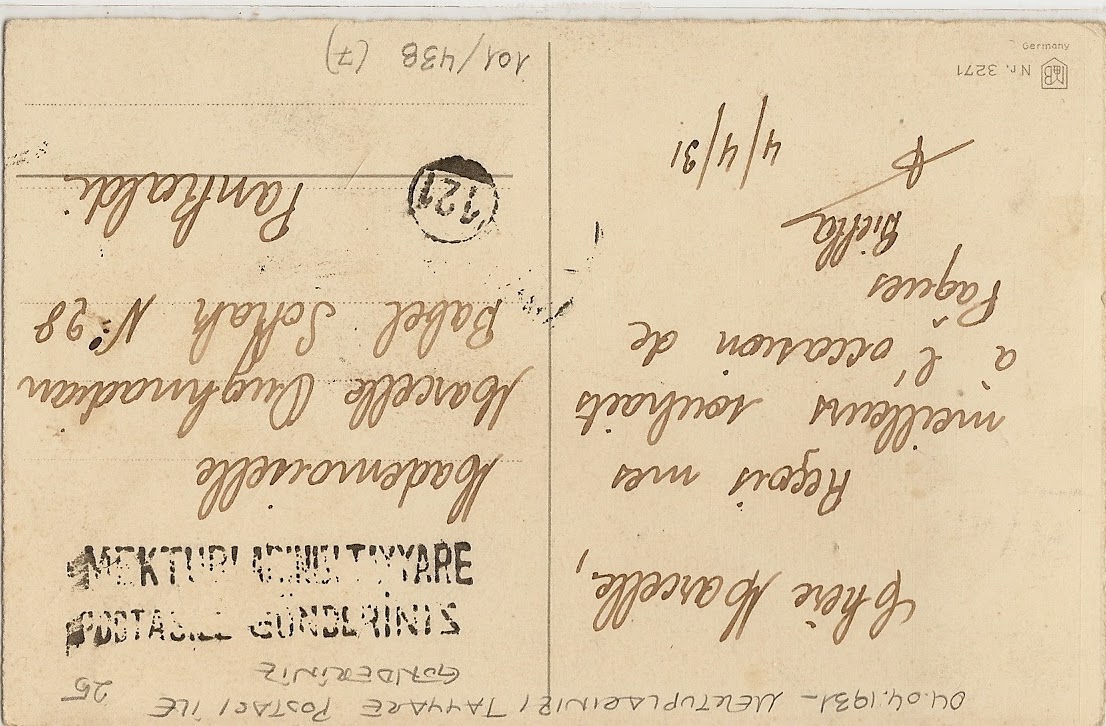 04.04.1931 - MEKTUPLARINIZI TAYYARE POSTASI İLE
GÖNDERİNİZ
25
Chère Marcelle,
Reçois mes
meilleurs souhaits
à l'occasion de
Pâques
4/4/31
Nr. 3271
Germany
MEKTUPLARINIZI TAYYARE
POSTASILE GÖNDERİNİZ
Mademoiselle
Marcelle
Babel Sokak N° 28
Pankaldi
121
101/438 (7)